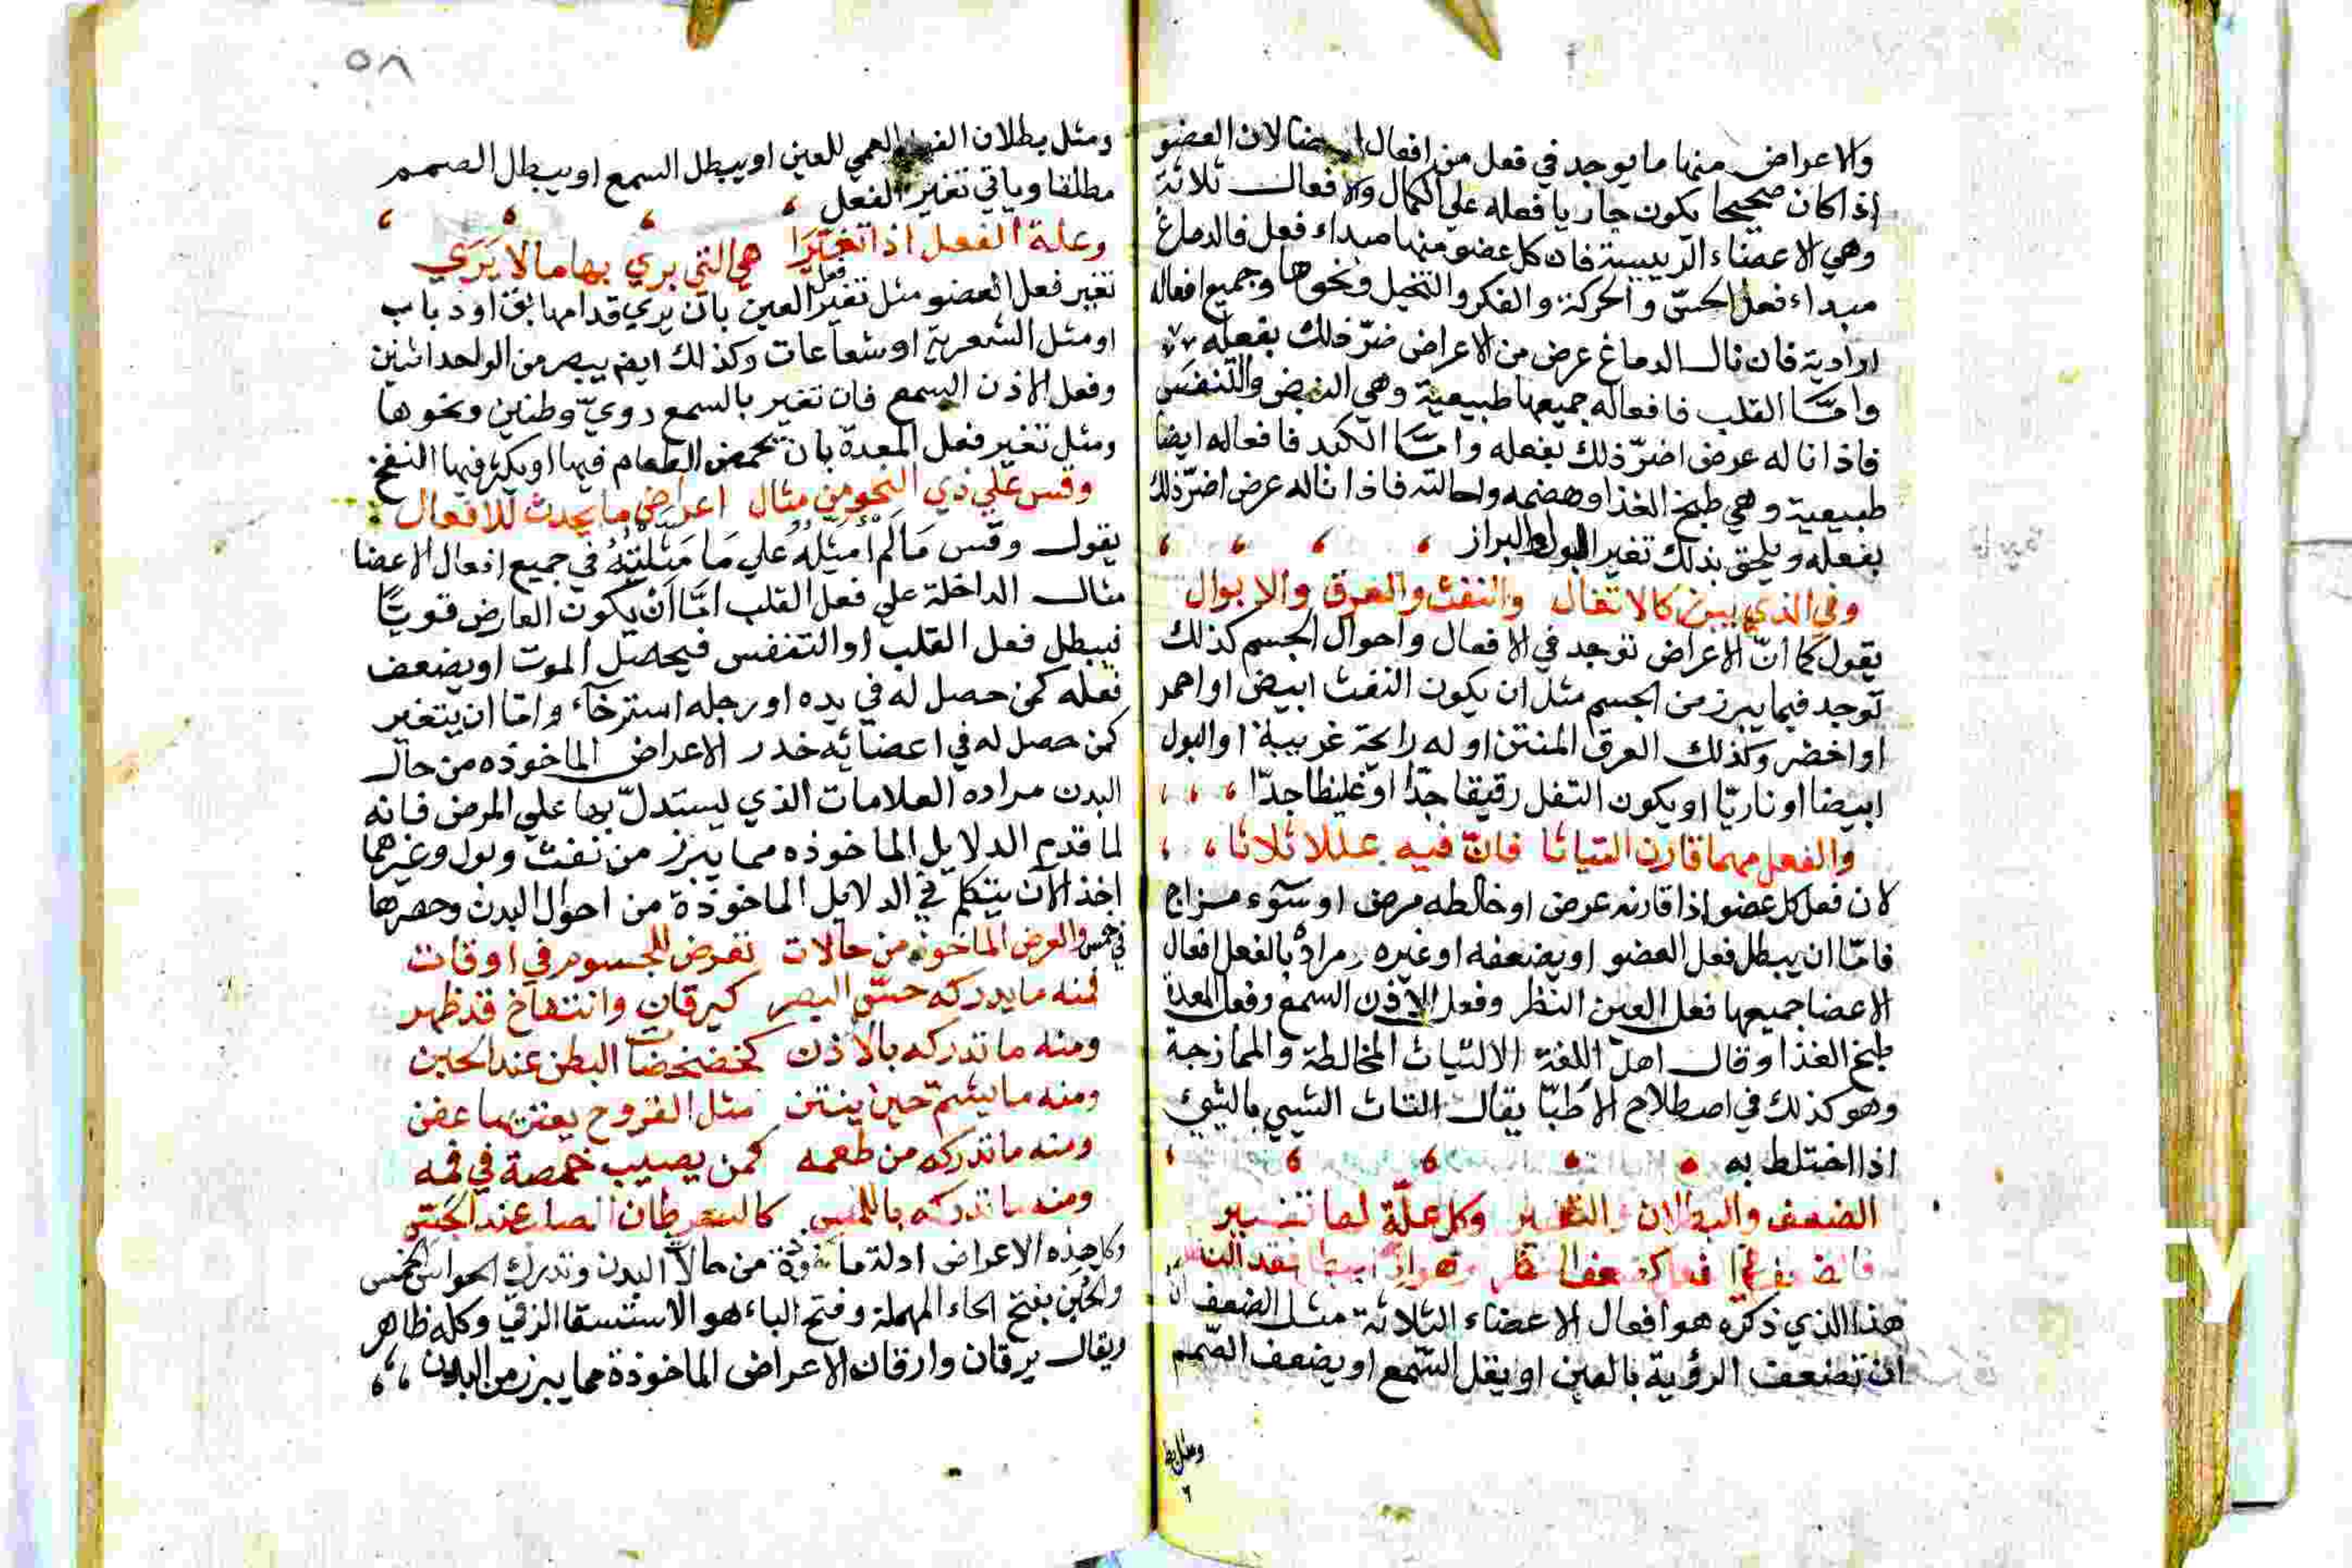 والاعراض منها ما يوجد في فعل من افعال لان العضو
اذا كان صحيحا يكون جاريا فعله علي الكمال والافعال ثلاثة
وهي الاعضاء الرييسة فان كل عضو منها مبداء فعل فالدماغ
مبداء فعل الحسّ والحركة والفكر والتخيل ونحوها وجميع افعاله
ارادية فان نال الدماغ عرض من الاعراض ضرّ ذلك بفعله
وامّا القلب فافعاله جميعها طبيعية وهي النبض والتنفس
فاذا ناله عرض اضرّ ذلك بفعله وامّا الكبد فافعاله ايضا
طبيعية وهي طبخ الغذا وهضمه واحالته فاذا ناله عرض اضرّ ذلك
بفعله ويلحق بذلك تغير البول والبراز
وفي الذي يبرز كالاتفال والنفث والعرق والابوال
يقول كما انّ الاعراض توجد في الافعال واحوال الجسم كذلك
توجد فيما يبرز من الجسم مثل ان يكون النفث ابيض او احمر
او اخضر وكذلك العرق المنتن او له رايحة غريبة او البول
ابيضا او ناريّا او يكون التفل رقيقا جدّا او غليظا جدّا
والفعل مهما قارن التياثا فان فيه عللا ثلاثا
لان فعل كل عضو اذا قارنه عرض او خالطه مرض او سوء مزاج
فامّا ان يبطل فعل العضو او يضعفه او غيره مراده بالفعل افعال
الاعضا جميعها فعل العين النظر وفعل الاذن السمع وفعل المعدة
طبخ الغذا وقال اهل اللغة الالتياث المخالطة والممازجة
وهو كذلك في اصطلاح الاطبّا يقال التاث الشيي بالشيئ
اذا اختلط به
الضعف والبطلان والتغيير وكل علّة لها تفسير
هذا الذي ذكره هو افعال الاعضاء الثلاثة مثل الضعف
ان تضعف الرؤية بالعين او يقل السّمع او يضعف الصّمم
ومثل بط
٥٨
ومثل بطلان والعمي للعين او يبطل السمع او يبطل الصمم
مطلقا وياتي تغير الفعل
وعلة الفعل اذا تغيّرا هي التي يري بها ما لا يَرَي
تغير فعل العضو مثل تغير فعل العين بان يري قدامها بق او دباب
او مثل الشعرية او شعاعات وكذلك ايض يبصر من الواحد اثنين
وفعل الاذن السمع فان تغير بالسمع دويّ وطنين ونحوها
ومثل تغير فعل المعدة بان يحمض الطعام فيها او يكثر فيها النفخ
وقس علي ذي النحو من مثال اعراض ما يحدث للافعال
يقول وقس مَا لَم اُمَثِّلهُ علي مَا مَثَّلْتُهُ في جميع افعال الاعضا
مثال الداخلة علي فعل القلب امّا ان يكون العارض قويّا
فيبطل فعل القلب او التنفس فيحصل الموت او يضعف
فعله كمن حصل له في يده او رجله استرخآء وامّا ان يتغير
كمن حصل له في اعضائه خدر الاعراض الماخوذه من حال
البدن مراده العلامات الذي يستدلّ بها علي المرض فانه
لما قدم الدلايل الماخوذه مما يبرز من نفث وبول وغيرهما
اخذ الآن يتكلم في الدلايل الماخوذة من احوال البدن وحصرها
في خمس والعرض الماخوذ من حالات تعرض للجسوم في اوقات
فمنه ما يدركه حسّ البصر كيرقان وانتفاخ قد ظهر
ومنه ما تدركه بالاذن كخضخضات البطن عند الحبن
ومنه ما يشم حين ينتن مثل القروح يعتن ما عفن
ومنه ما تدركه من طعمه كمن يصيب حمصة في فمه
ومنه ما تدركه باللمس كالسرطان الصلب عند الجَسّ
وكل هذه الاعراض ادلة ماخوذة من حالات البدن وتدرك الحواس الخمس
والحَبَن بفتح الحاء المهملة وفتح الباء هو الاستسقا الزقي وكله ظاهر
ويقال يرقان وارقان الاعراض الماخوذة مما يبرز من البدن